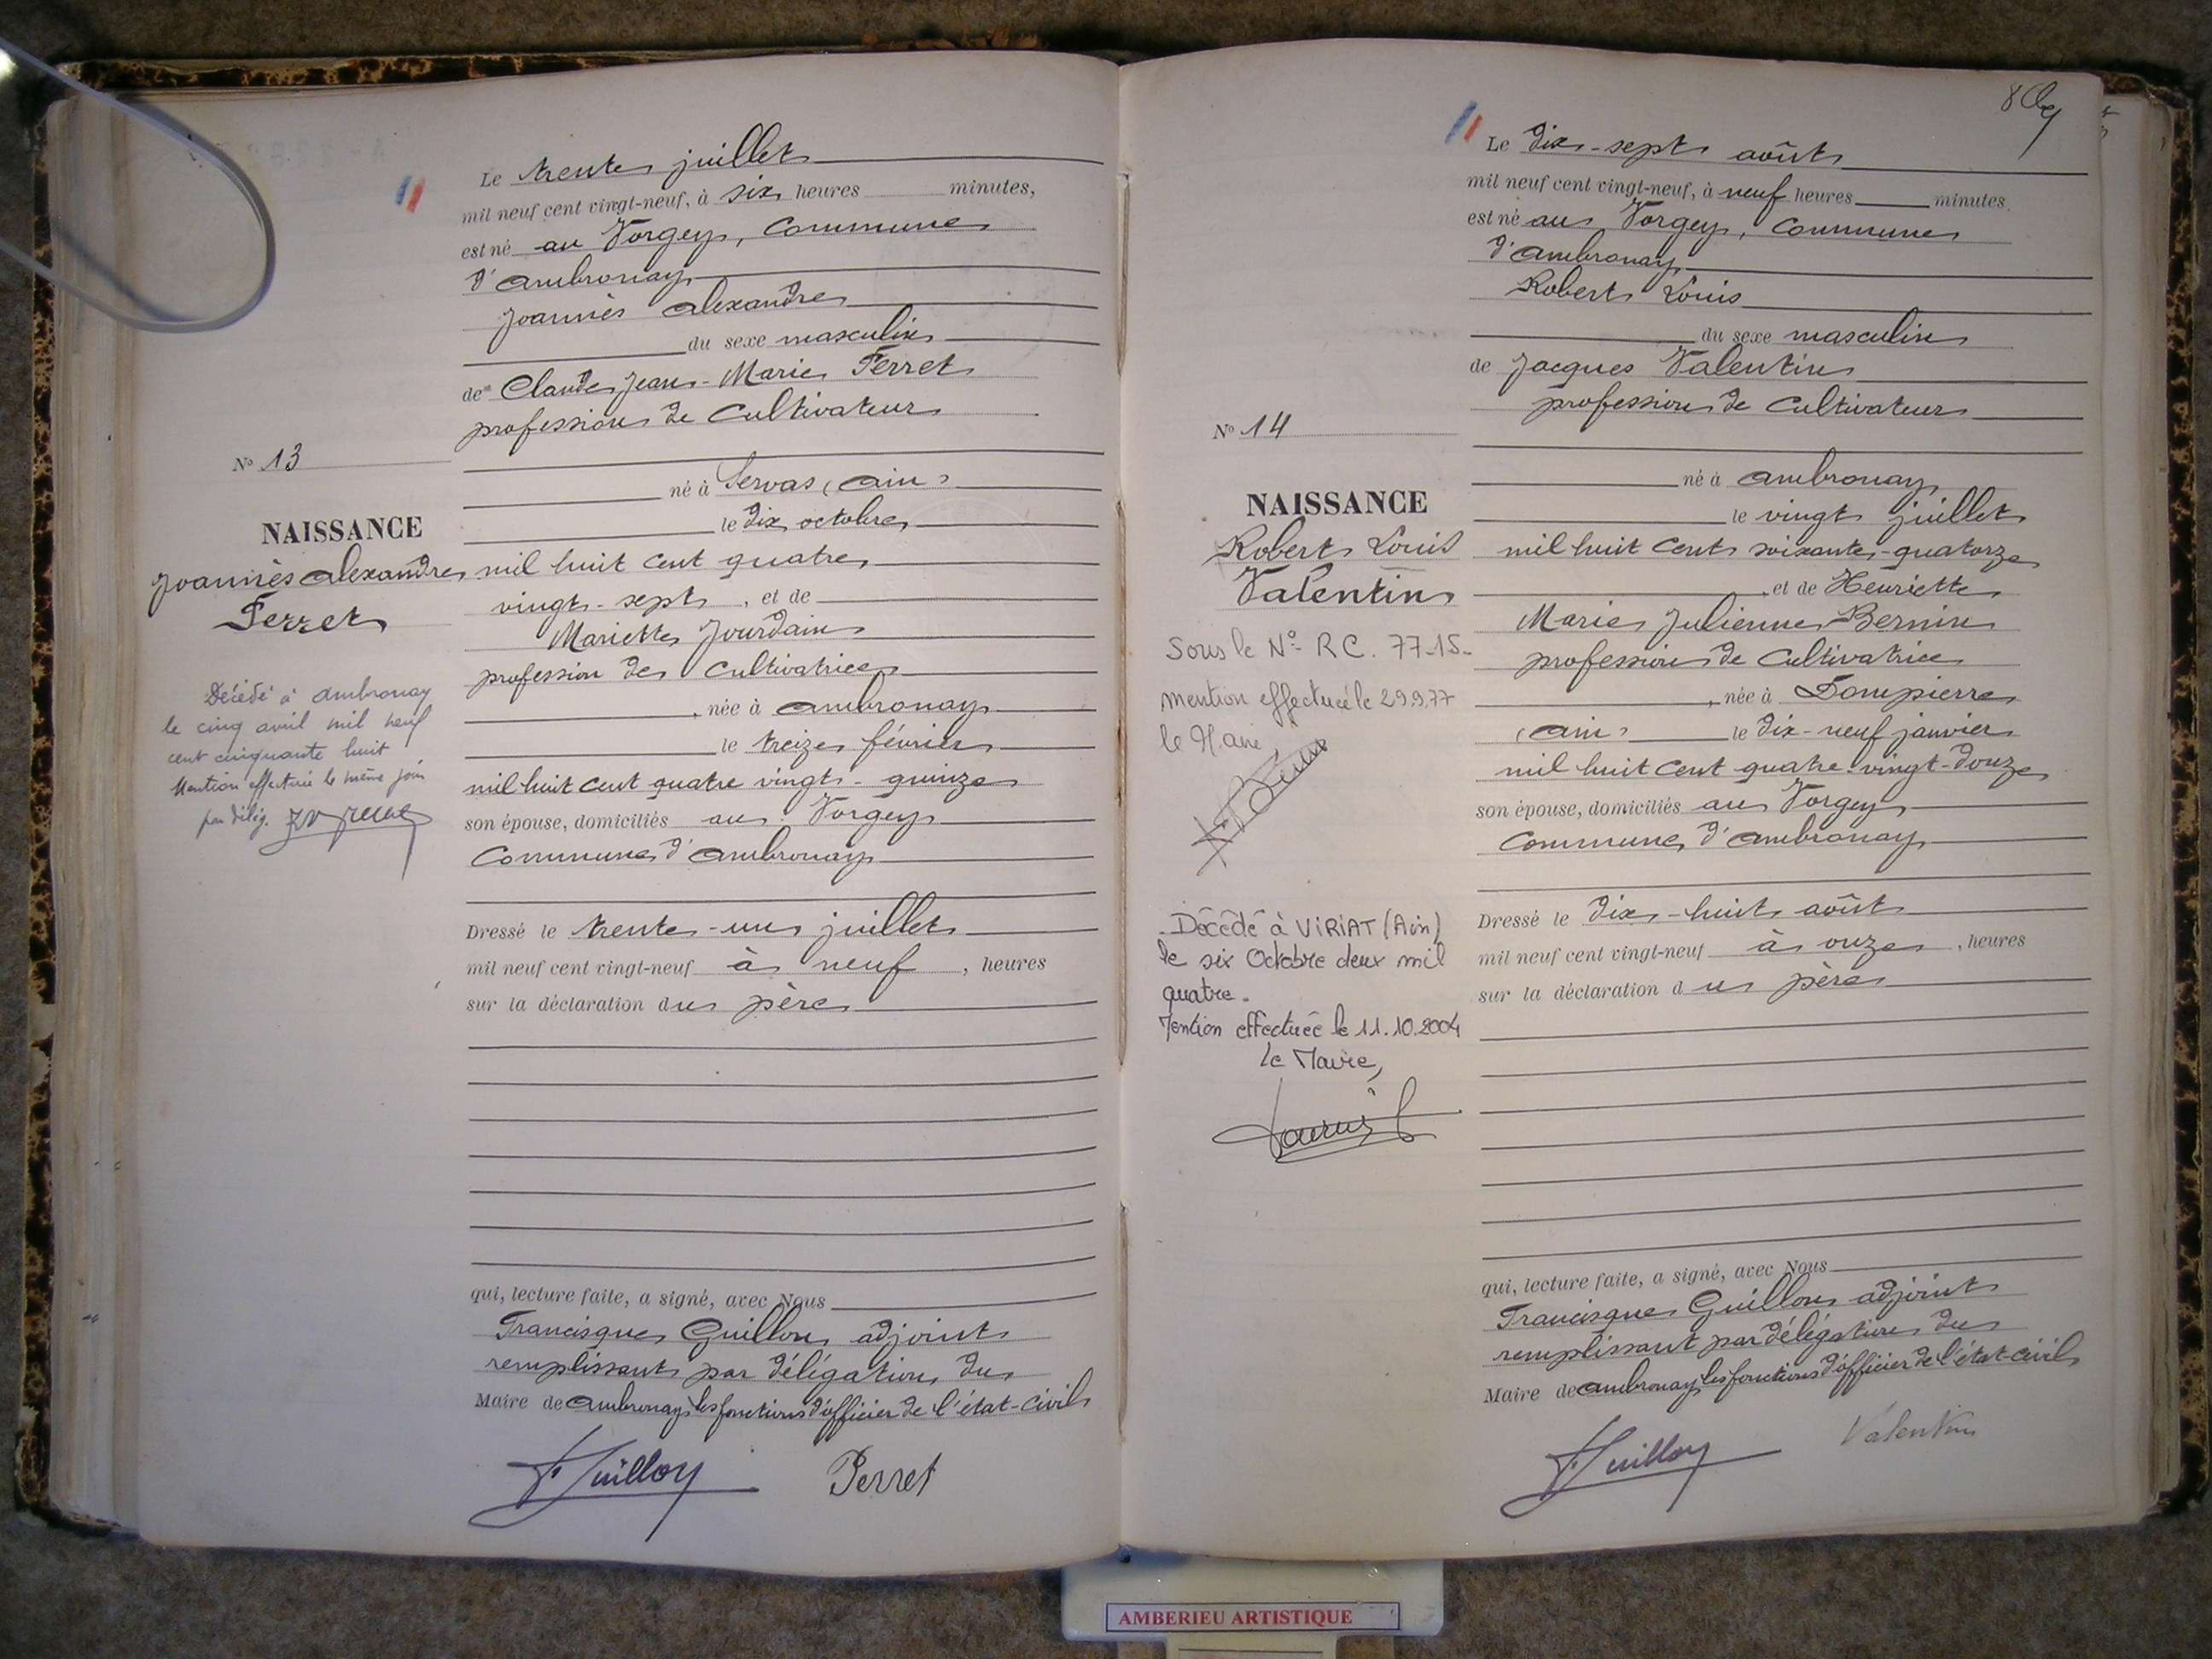 Le trente juillet
mil neuf cent vingt-neuf, à six heures minutes,
est né au Vorgey, Commune
d'Ambronay
Joannès Alexandre
du sexe masculin
de Claude Jean-Marie Perret
profession de Cultivateur
N° 13
né à Servas (Ain)
le dix octobre
NAISSANCE
Joannès Alexandre
Perret
mil huit cent quatre
vingt-sept, et de
Mariette Jourdain
profession de Cultivatrice
née à Ambronay
le treize février
mil huit cent quatre vingt-quinze
son épouse, domiciliés au Vorgey
Commune d'Ambronay
Décédé à Ambronay
le cinq avril mil neuf
cent cinquante huit
Mention effectuée le même jour
par délég.
Dressé le trente-un juillet
mil neuf cent vingt-neuf à neuf, heures
sur la déclaration du père
qui, lecture faite, a signé, avec Nous
Francisque Guillon adjoint
remplissant par délégation du
Maire de Ambronay les fonctions d'officier de l'état-civil
F. Guillon Perret
Le dix-sept août
mil neuf cent vingt-neuf, à neuf heures minutes
est né au Vorgey, Commune
d'Ambronay
Robert Louis
du sexe masculin
de Jacques Valentin
profession de Cultivateur
N° 14
né à Ambronay
le vingt juillet
NAISSANCE
Robert Louis
Valentin
mil huit cent soixante-quatorze
et de Henriette
Marie Julienne Bernin
profession de Cultivatrice
née à Dompierre
(Ain) le dix-neuf janvier
mil huit cent quatre-vingt-douze
son épouse, domiciliés au Vorgey
Commune d'Ambronay
Sous le N° RC. 77-15-
mention effectuée le 29.9.77
le Maire,
Décédé à VIRIAT (Ain)
le six Octobre deux mil
quatre.
Mention effectuée le 11.10.2004
le Maire,
Dressé le dix-huit août
mil neuf cent vingt-neuf à onze, heures
sur la déclaration du père
qui, lecture faite, a signé, avec Nous
Francisque Guillon adjoint
remplissant par délégation du
Maire de Ambronay les fonctions d'officier de l'état-civil
F. Guillon Valentin
AMBERIEU ARTISTIQUE